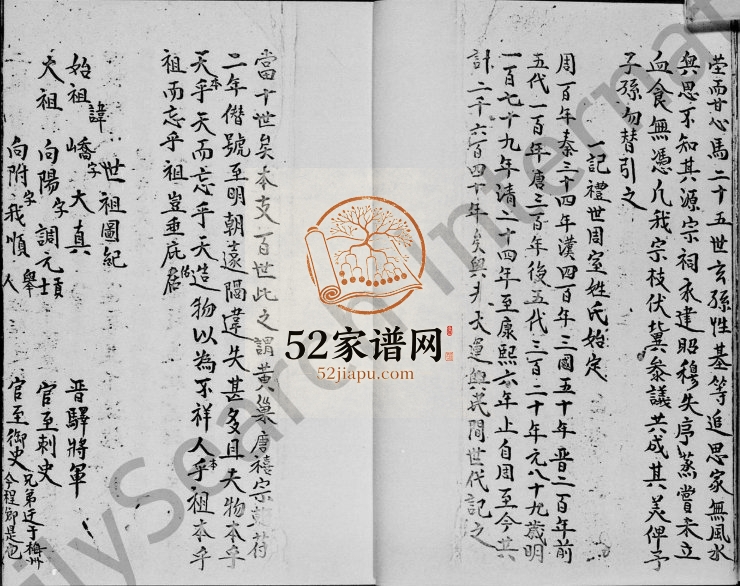 塋而甘心焉二十五世玄孫性基等追思家無風水
與思不知其源宗祠未建昭穆失序蒸嘗未立
血食無憑凡我宗枝伏冀參議共成其美俾子
子孫勿替引之
一記禮世周室姓氏始定
周一百年秦三十四年漢四百年三國五十年晋二百年前
五代一百年唐三百年後五代三百二十年元八十九歲明
一百七十九年清二十四年至康熙六年上自周至今共
計二千六百四十年矣與夫大運與民間世代記之
當十世矣本支百世此之謂黃巢唐禧宗乾符
二年僭號至明朝遠隔違失甚多且夫物本乎
天乎本天而忘乎天造物以為不祥人本乎祖本乎
祖而忘乎祖豈垂庇居
世祖圖紀
始祖諱嶠字大真 晋驛將軍
大祖向陽字調元士 官至刺史
向附字我順舉人 官至御史兄弟迁于梅州今程鄉是也
52家谱网
52jiapu.com
ilySearch Internat